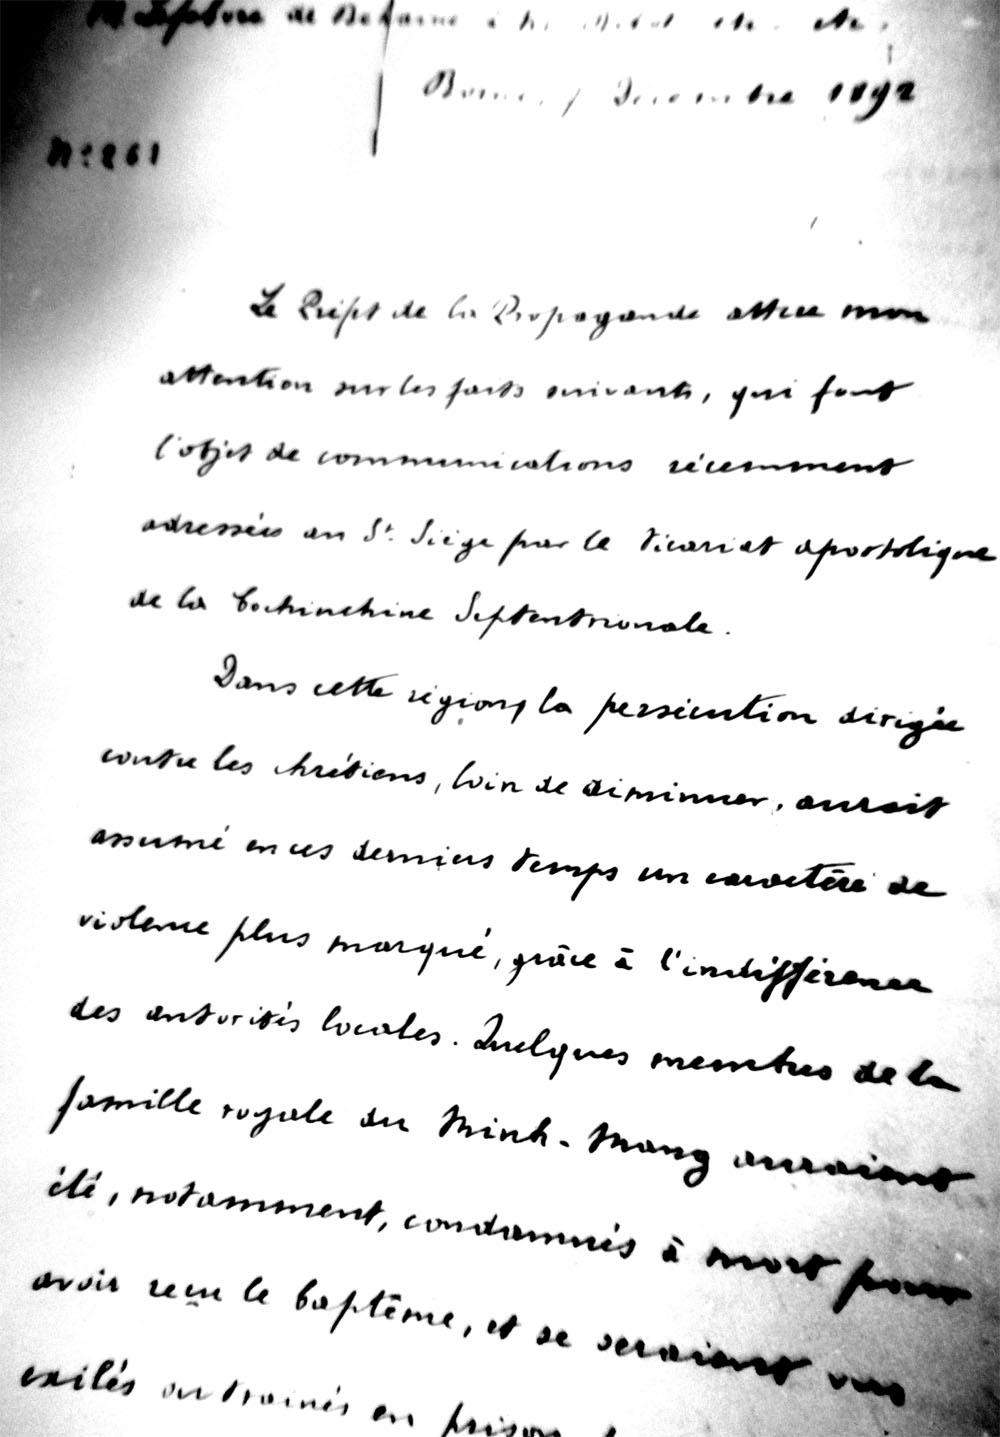 M. Lefebvre de Behaine à M. Ribot etc. etc.
Rome, 7 Décembre 1892
N° 261
Le Préfet de la Propagande attire mon
attention sur les faits suivants, qui font
l'objet de communications récemment
adressées au St. Siège par le Vicariat apostolique
de la Cochinchine Septentrionale.
Dans cette région, la persécution dirigée
contre les chrétiens, loin de diminuer, aurait
assumé en ces derniers temps un caractère de
violence plus marqué, grâce à l'indifférence
des autorités locales. Quelques membres de la
famille royale du Minh-Mang auraient
été, notamment, condamnés à mort pour
avoir reçu le baptême, et se seraient vus
exilés ou trainés en prison